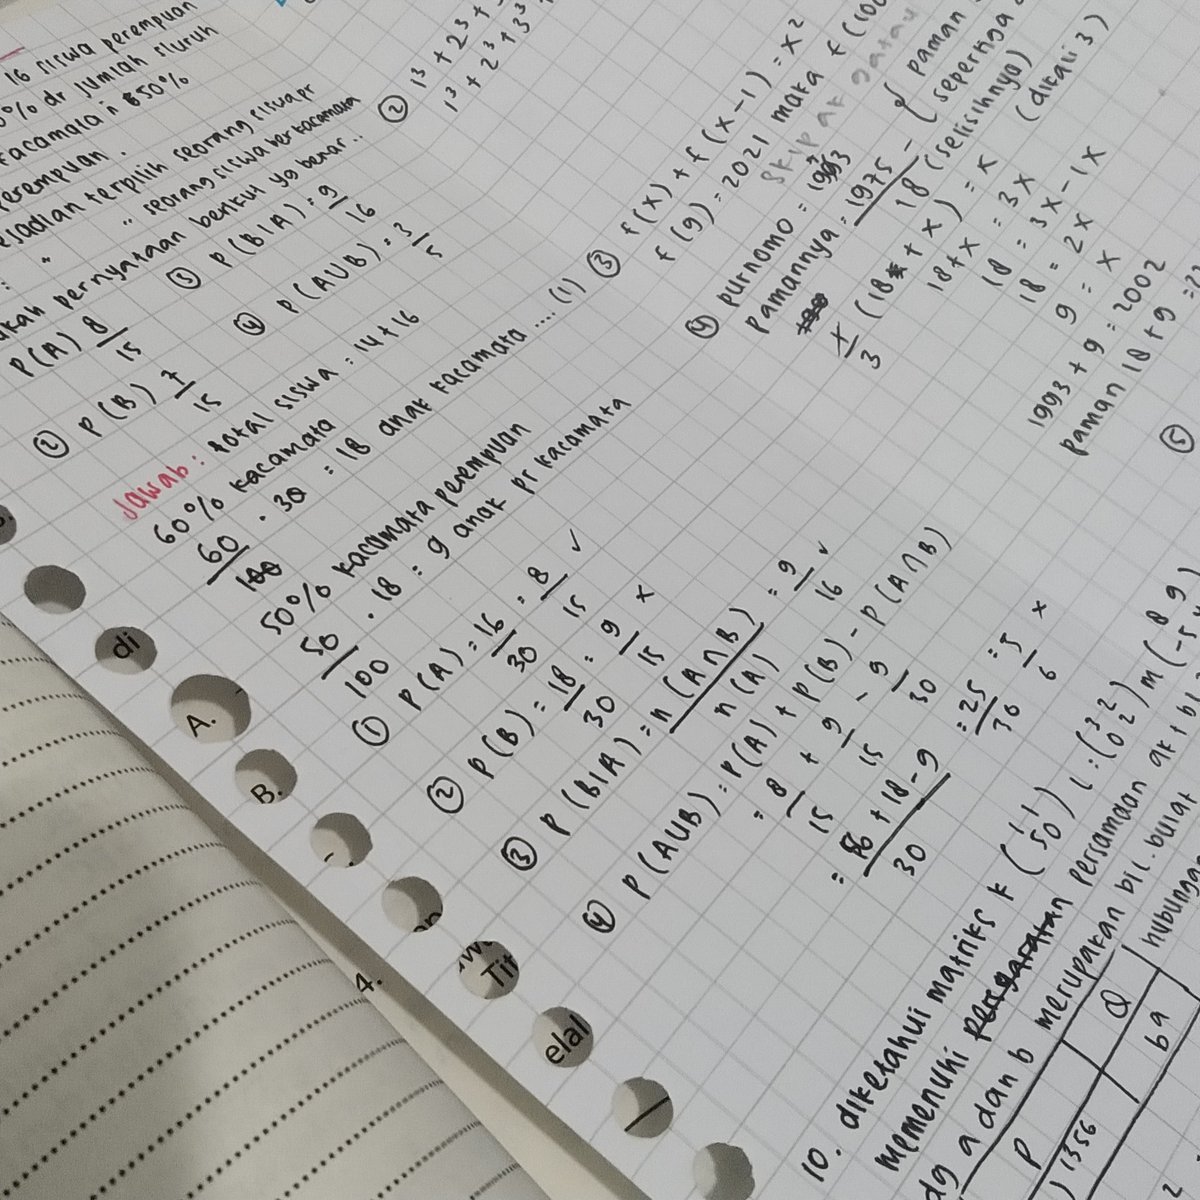 16 siswa perempuan
0% dr jumlah sluruh
kacamata n 50%
perempuan.
terpilih seorang siswa pr
" seorang siswa berkacamata
pernyataan berikut yg benar..
P(A) 8/15
③ P(B|A) = 9/16
② P(B) 7/15
④ P(AUB) = 3/5
Jawab: total siswa = 14 + 16
60% kacamata
60/100 . 30 = 18 anak kacamata ....(1)
50% kacamata perempuan
50/100 . 18 = 9 anak pr kacamata
① P(A) = 16/30 = 8/15 ✓
② P(B) = 18/30 = 9/15 x
③ P(B|A) = n(A∩B)/n(A) = 9/16 ✓
④ P(AUB) = P(A) + P(B) - P(A∩B)
= 8/15 + 9/15 - 9/30
= 16 + 18 - 9/30 = 25/30 = 5/6 x
② 1³ + 2³ +
1³ + 2³ + 3³
③ f(x) + f(x-1) = x²
f(9) = 2021 maka f(100
SKIP
④ purnomo = 1993
pamannya = 1975 -
18 (selisihnya)
{ paman
sepertiga
(dikali 3)
x/3 (18 + x) = x
18 + x = 3x
18 = 3x - 1x
18 = 2x
9 = x
1993 + 9 = 2002
paman 18 + 9 = 27
⑤
10. diketahui matriks K (1 1 / 5 0) L : (3 2 / 0 2) M (8 9 / -5
memenuhi persamaan ak + bl
dg a dan b merupakan bil. bulat
P Q hubungan
1356 ba
di
A.
B.
Tit
elal
4.